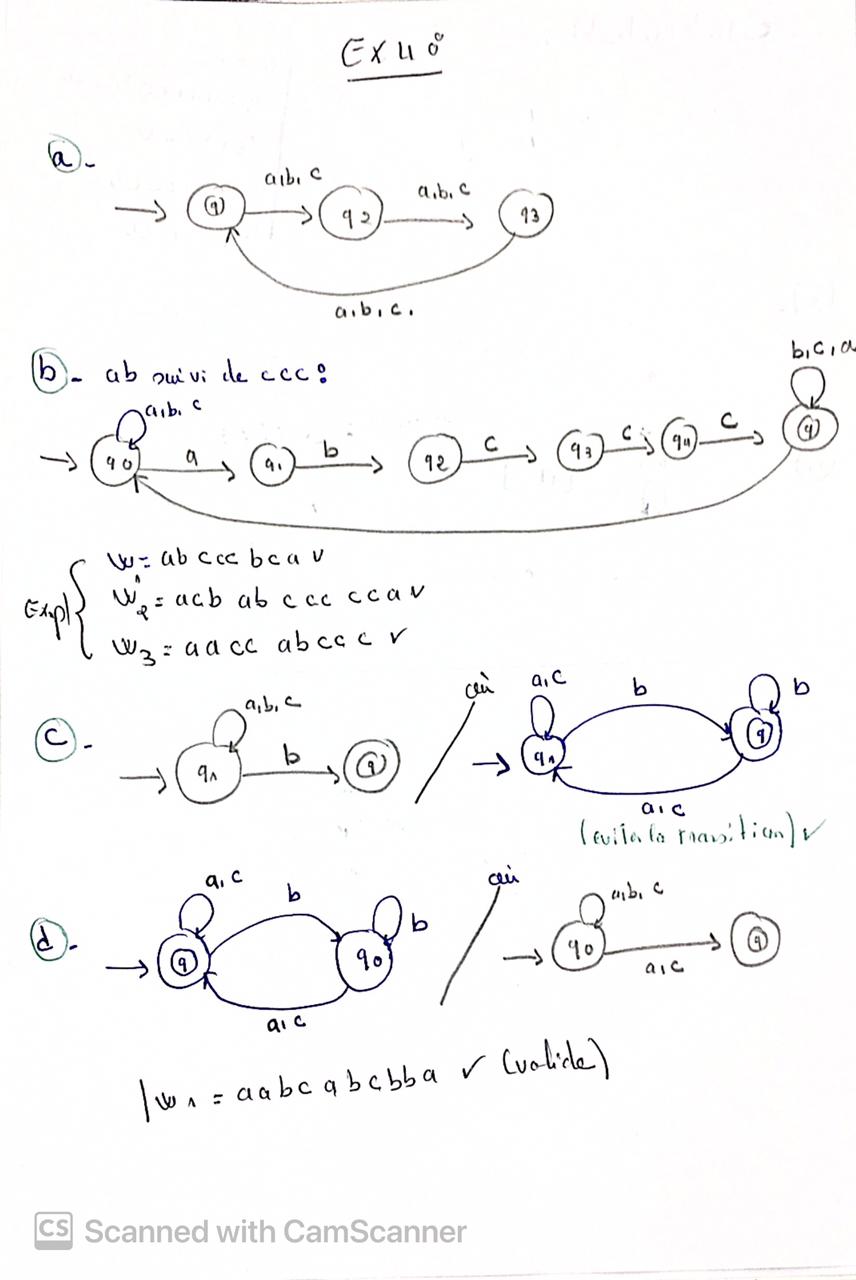 EX 4 °
a -
a,b,c
a,b,c
q
q2
q3
a,b,c.
b - ab suivi de ccc :
a,b,c
b,c,a
q0
a
q1
b
q2
c
q3
c
q4
c
q
Expl
w1 = ab ccc bca v
w2 = acb ab ccc cca v
w3 = aacc abcc c v
c -
a,b,c
q1
b
q
/
a,c
b
b
q1
q
a,c
d -
a,c
b
b
q
q0
a,c
/
a,b,c
q0
a,c
q
w1 = aabc abcbba ✓ (valide)
CS Scanned with CamScanner